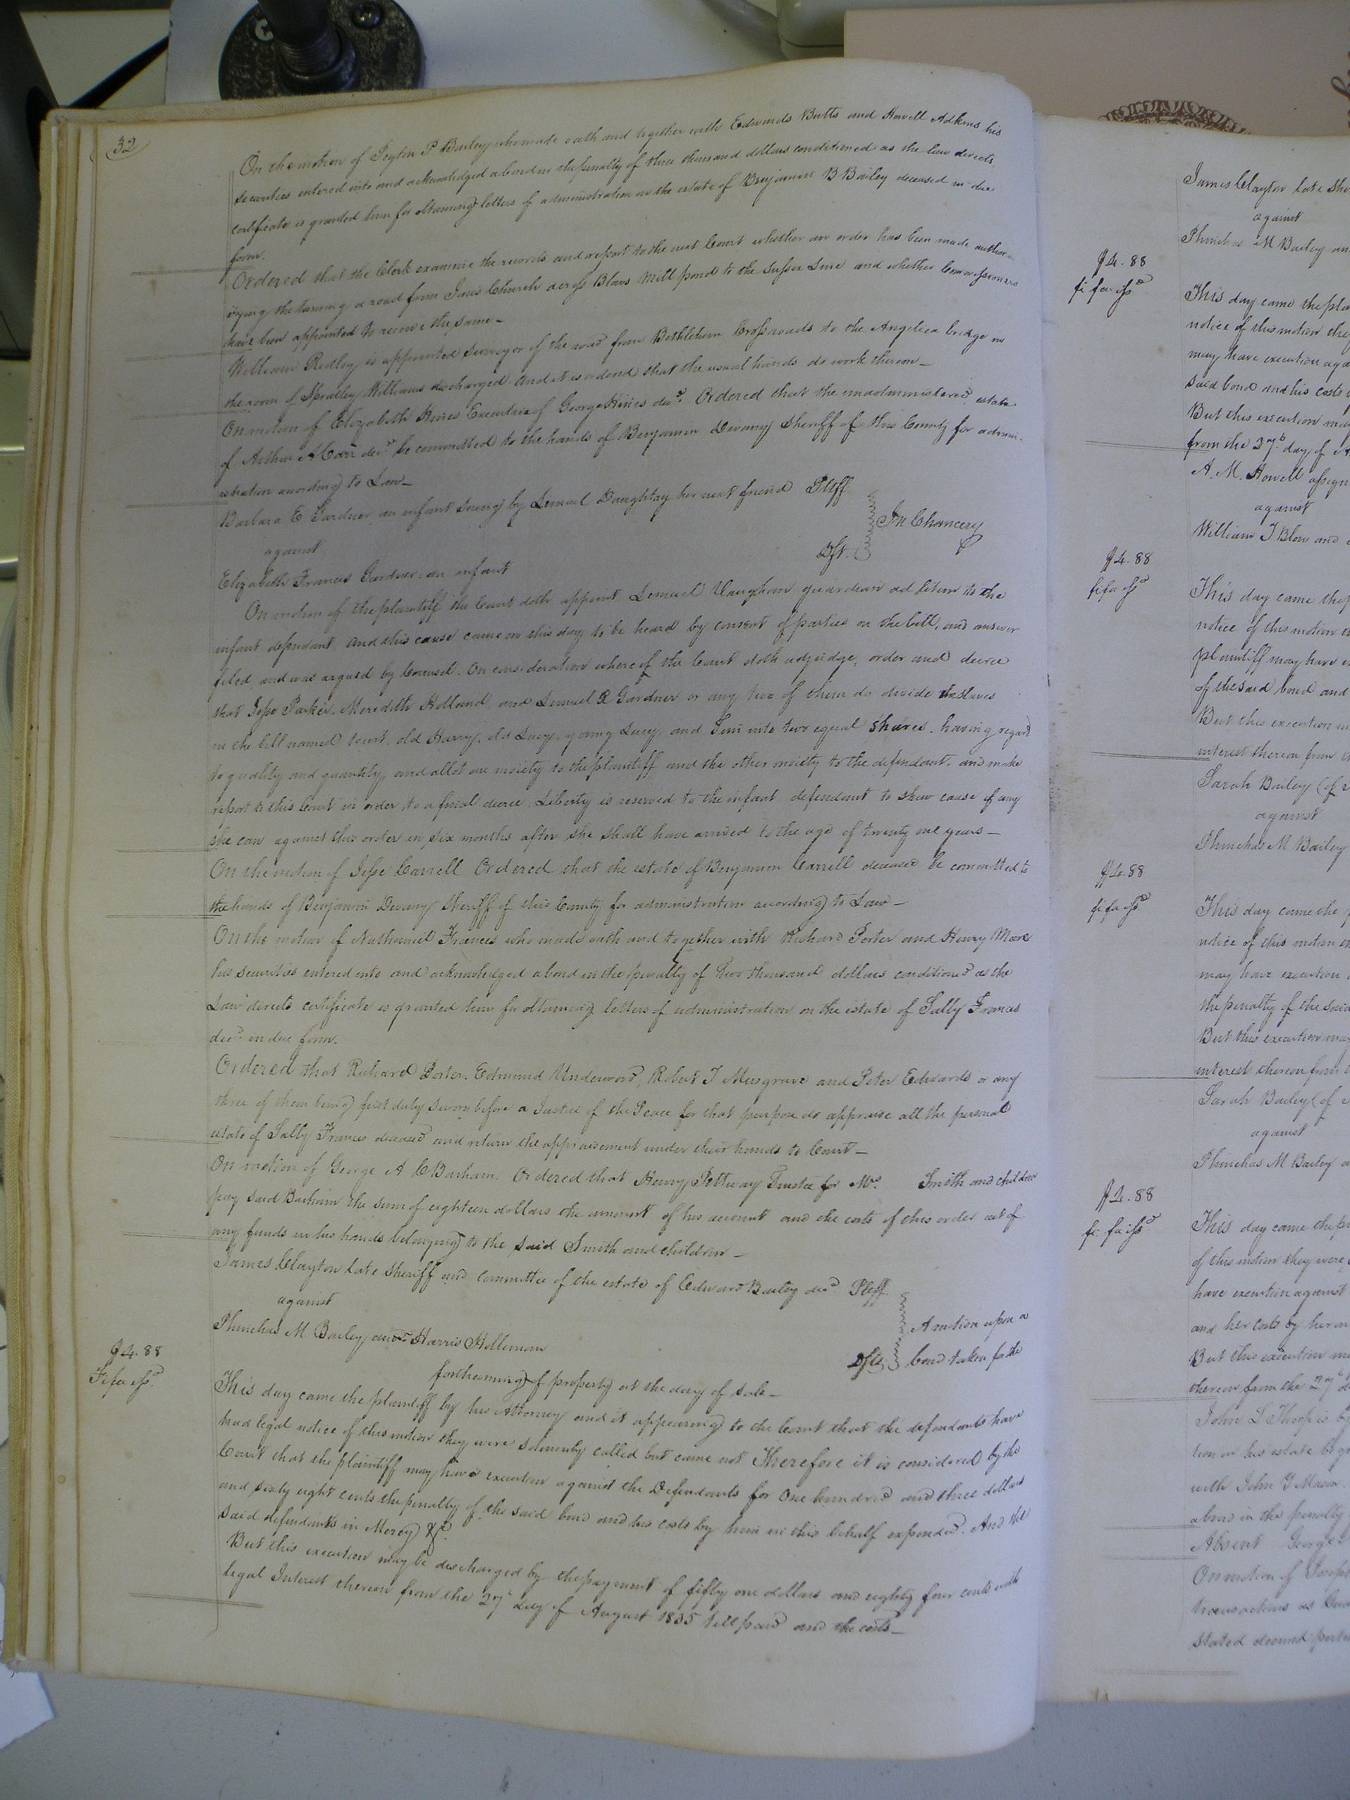 32
On the motion of Peyton P Bailey who made oath and together with Edmunds Butts and Howell Adkins his
securities entered into and acknowledged a bond in the penalty of three thousand dollars conditioned as the law directs
certificate is granted him for obtaining letters of administration on the estate of Benjamin B Bailey deceased in due
form.
Ordered that the Clerk examine the records and report to the next Court whether an order has been made author-
izing the turning a road from Church across Blows Mill pond to the Sussex Line and whether Commissioners
have been appointed to receive the same -
William Ridley is appointed Surveyor of the road from Bethlehem Crossroads to the Angelica bridge in
the room of Spratley Williams discharged. And it is ordered that the usual hands do work thereon -
On motion of Elizabeth Hines Executrix of George Hines decd. Ordered that the unadministered estate
of Arthur A Carr decd be committed to the hands of Benjamin Devany Sheriff of this County for admini-
stration according to Law -
Barbara E Gardner an infant suing by Lemuel Daughtry her next friend Pltff
against
In Chancery
Elizabeth Frances Gardner an infant Dft.
On motion of the plaintiff the Court doth appoint Lemuel Vaughan guardian ad litem to the
infant defendant And this cause came on this day to be heard by consent of parties on the bill, and answer
filed and was argued by Counsel. On consideration whereof the Court doth adjudge, order and decree
that Jesse Parker, Meredith Holland and Lemuel Gardner or any two of them do divide the slaves
in the bill named towit. old Harry, old Lucy, young Lucy, and into two equal shares. having regard
to quality and quantity, and allot one moiety to the plaintiff and the other moiety to the defendant. and make
report to this Court in order to a final decree. Liberty is reserved to the infant defendant to shew cause if any
she can against this order in six months after she shall have arrived to the age of twenty one years -
On the motion of Jesse Carrell Ordered that the estate of Benjamin Carrell deceased be committed to
the hands of Benjamin Devany Sheriff of this County for administration according to Law -
On the motion of Nathaniel Frances who made oath and together with Richard Porter and Henry Moore
his securities entered into and acknowledged a bond in the penalty of Two thousand dollars conditioned as the
Law directs certificate is granted him for obtaining letters of administration on the estate of Sally Frances
decd in due form.
Ordered that Richard Porter, Edmund Underwood, Robert T Musgrave and Peter Edwards or any
three of them being first duly sworn before a Justice of the Peace for that purpose do appraise all the personal
estate of Sally Frances deceased and return the appraisement under their hands to Court -
On motion of George A C Barham. Ordered that Henry Pettway Trustee for Mrs. Smith and children
pay said Barham the sum of eighteen dollars the amount of his account and the costs of this order out of
any funds in his hands belonging to the said Smith and children -
James Clayton late Sheriff and Committee of the estate of Edward Bailey decd Pltff
against
A motion upon a
Phinehas M Bailey and Harris Holleman Dfts. bond taken for the
forthcoming of property at the day of sale -
$4.88
Fi fa issd
This day came the plaintiff by his Attorney and it appearing to the Court that the defendants have
had legal notice of this motion they were solemnly called but came not Therefore it is considered by the
Court that the plaintiff may have execution against the Defendants for One hundred and three dollars
and sixty eight cents the penalty of the said bond and his costs by him in this behalf expended. And the
said defendants in Mercy &c.
But this execution may be discharged by the payment of fifty one dollars and eighty four cents with
legal Interest thereon from the 27 day of August 1835 till paid and the costs -
James Clayton late She
against
Phinehas M Bailey an
$4.88
fi fa issd
This day came the pla
notice of this motion they
may have execution aga
said bond and his costs
But this execution may
from the 27 day of A
A. M. Howell assign
against
William T Blow and
$4.88
fi fa issd
This day came the p
notice of this motion
plaintiff may have
of the said bond and
But this execution m
interest thereon from
Sarah Bailey (of
against
Phinehas M Bailey
$4.88
fi fa issd
This day came the
notice of this motion
may have execution
the penalty of the said
But this execution may
interest thereon from
Sarah Bailey (of
against
Phinehas M Bailey
$4.88
fi fa issd
This day came the p
of this motion they were
have execution against
and her costs by her in
But this execution m
thereon from the 27 d
John L
tion on his estate
with John G Mason
a bond in the penalty
Absent George
On motion of
transactions as
stated account